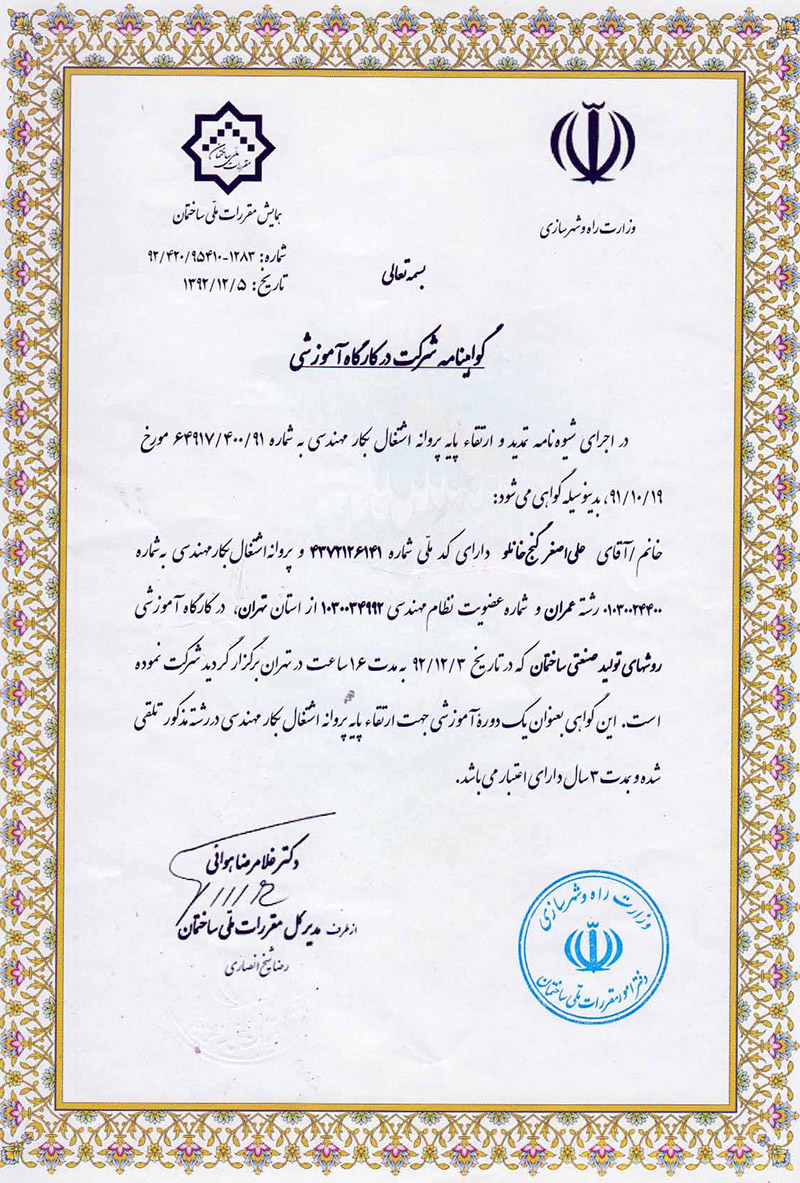 مقررات ملی ساختمان
همایش مقررات ملّی ساختمان
وزارت راه و شهرسازی
شماره: ۱۲۸۳-۹۲/۴۲۰/۹۵۴۱۰
تاریخ: ۱۳۹۲/۱۲/۵
بسمه تعالی
گواهینامه شرکت در کارگاه آموزشی
در اجرای شیوه نامه تمدید و ارتقاء پایه پروانه اشتغال بکار مهندسی به شماره ۶۴۹۱۷/۴۰۰/۹۱ مورخ
۹۱/۱۰/۱۹، بدینوسیله گواهی می‌شود:
خانم /آقای علی اصغر گنج خانلو دارای کد ملّی شماره ۴۳۷۲۱۲۶۱۴۱ و پروانه اشتغال بکار مهندسی به شماره
۰۱۰۳۰۰۲۴۴۰۰ رشته عمران و شماره عضویت نظام مهندسی ۱۰۳۰۰۳۴۹۹۲ از استان تهران، در کارگاه آموزشی
روشهای تولید صنعتی ساختمان که در تاریخ ۹۲/۱۲/۳ به مدت ۱۶ ساعت در تهران برگزار گردید شرکت نموده
است. این گواهی بعنوان یک دورهٔ آموزشی جهت ارتقاء پایه پروانه اشتغال بکار مهندسی در رشته مذکور تلقی
شده و بمدت ۳ سال دارای اعتبار می‌باشد.
دکتر غلامرضا هوائی
از طرف مدیرکل مقررات ملّی ساختمان
رضا شیخ انصاری
وزارت راه و شهرسازی
دفتر امور مقررات ملی ساختمان